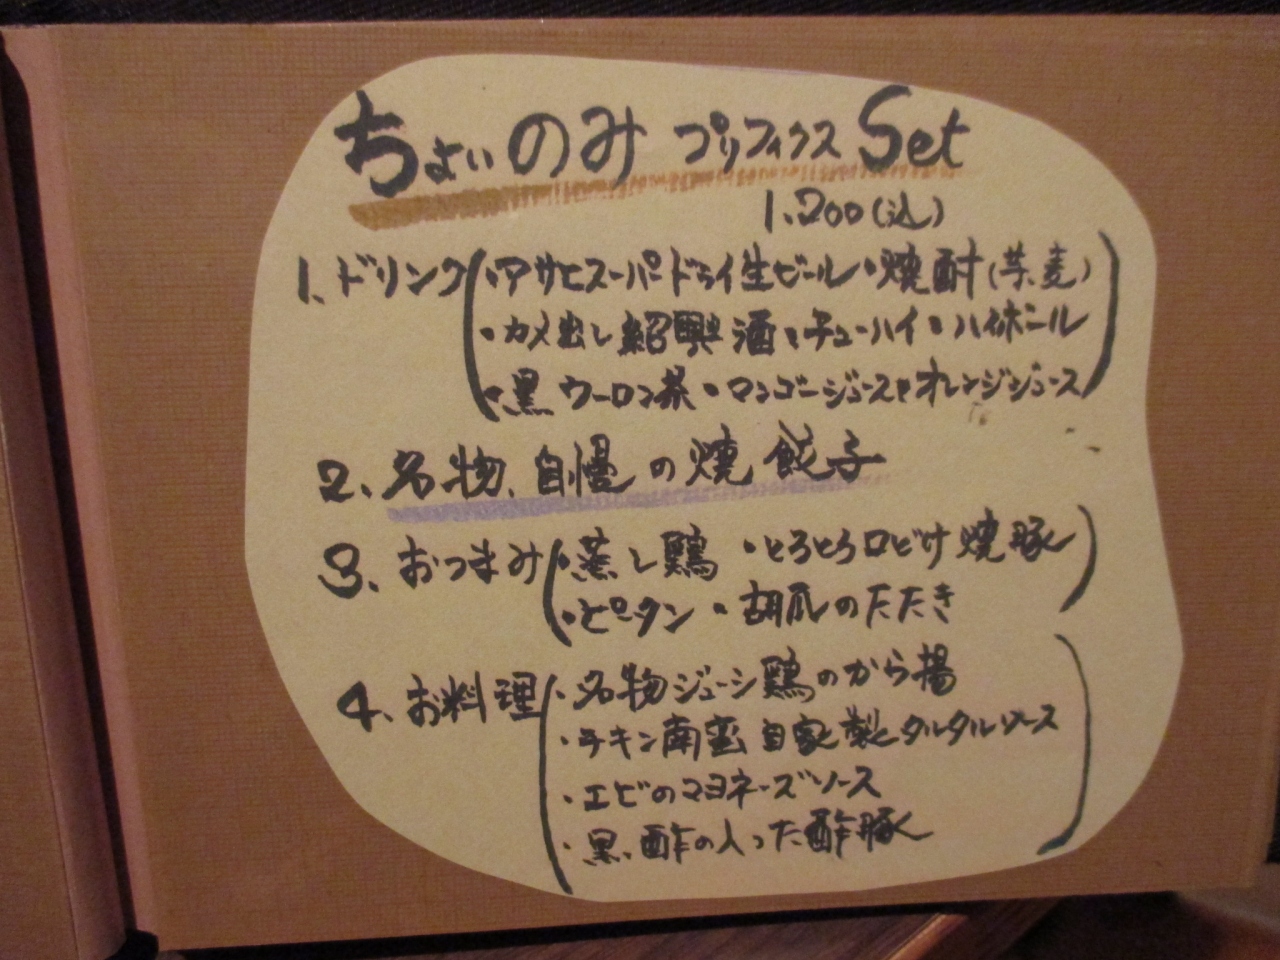 ちょいのみ プリフィクス Set
1.200(込)
1、ドリンク(・アサヒスーパードライ生ビール・焼酎(芋、麦)
・カメ出し紹興酒・チューハイ・ハイボール
・黒ウーロン茶・マンゴージュース・オレンジジュース)
2、名物、自慢の焼餃子
3、おつまみ(・蒸し鶏 ・とろとろ口どけ焼豚
・ピータン ・胡瓜のたたき)
4、お料理(・名物ジューシ鶏のから揚
・チキン南蛮 自家製タルタルソース
・エビのマヨネーズソース
・黒酢の入った酢豚)